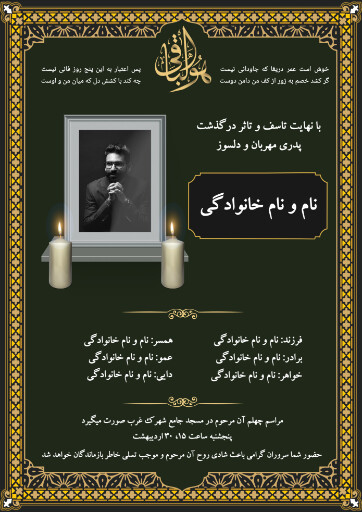 هوالباقی
خوش است عمر دریغا که جاودانی نیست
پس اعتبار به این پنج روز فانی نیست
گر کشد خصم به زور از کف من دامن دوست
چه کند با کشش دل که میان من و اوست
با نهایت تاسف و تاثر درگذشت
پدری مهربان و دلسوز
نام و نام خانوادگی
فرزند: نام و نام خانوادگی
همسر: نام و نام خانوادگی
برادر: نام و نام خانوادگی
عمو: نام و نام خانوادگی
خواهر: نام و نام خانوادگی
دایی: نام و نام خانوادگی
مراسم چهلم آن مرحوم در مسجد جامع شهرک غرب صورت میگیرد
پنجشنبه ساعت ۱۵، ۳۰ اردیبهشت
حضور شما سروران گرامی باعث شادی روح آن مرحوم و موجب تسلی خاطر بازماندگان خواهد شد